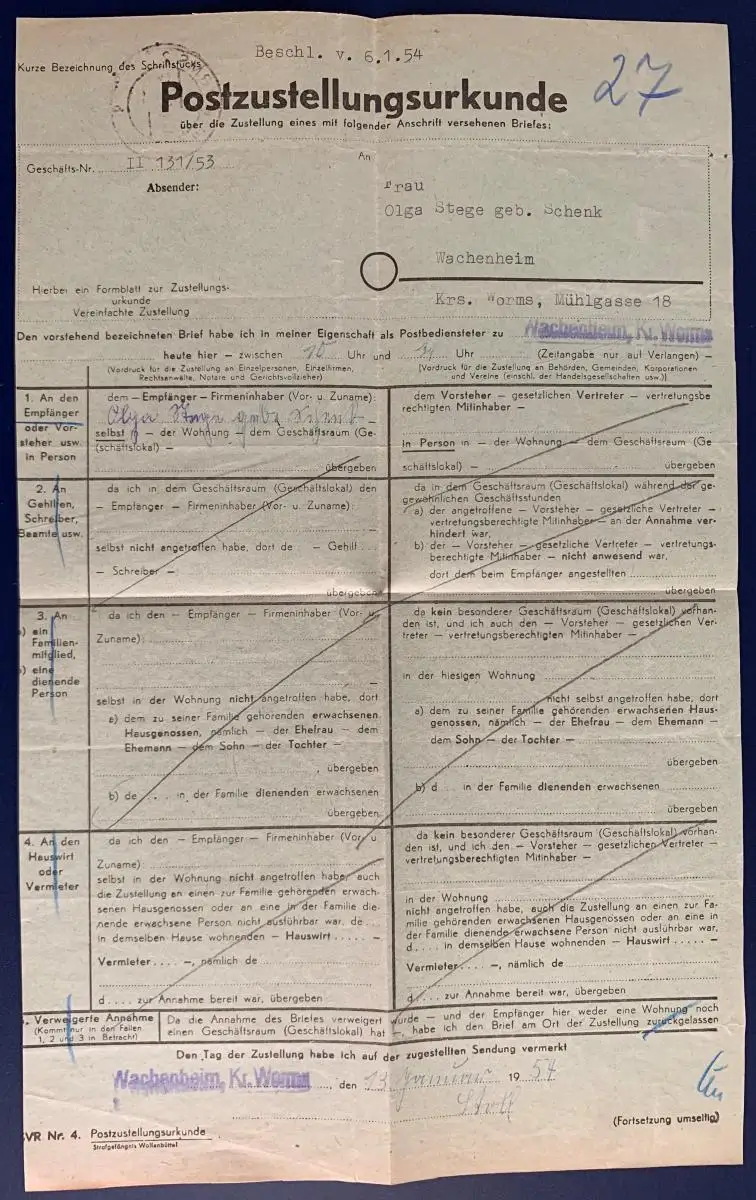 Beschl. v. 6.1.54
Kurze Bezeichnung des Schriftstücks
27
Postzustellungsurkunde
über die Zustellung eines mit folgender Anschrift versehenen Briefes:
Geschäfts-Nr. II 131/53
An
Absender:
Frau
Olga Stege geb. Schenk
Wachenheim
Hierbei ein Formblatt zur Zustellungs-
urkunde
Vereinfachte Zustellung
Krs. Worms, Mühlgasse 18
Den vorstehend bezeichneten Brief habe ich in meiner Eigenschaft als Postbediensteter zu Wachenheim, Kr. Worms
heute hier – zwischen 10 Uhr und 11 Uhr (Zeitangabe nur auf Verlangen) –
(Vordruck für die Zustellung an Einzelpersonen, Einzelfirmen,
Rechtsanwälte, Notare und Gerichtsvollzieher)
(Vordruck für die Zustellung an Behörden, Gemeinden, Korporationen
und Vereine (einschl. der Handelsgesellschaften usw.))
1. An den
Empfänger
oder Vor-
steher usw.
in Person
dem – Empfänger – Firmeninhaber (Vor- u. Zuname):
Olga Stege geb. Schenk –
selbst – der Wohnung – dem Geschäftsraum (Ge-
(schäftslokal) –
übergeben
dem Vorsteher – gesetzlichen Vertreter – vertretungsbe
rechtigten Mitinhaber –
in Person in – der Wohnung – dem Geschäftsraum (Ge
schäftslokal) –
übergeben
2. An
Gehilfen,
Schreiber,
Beamte usw.
da ich in dem Geschäftsraum (Geschäftslokal) den
– Empfänger – Firmeninhaber (Vor- u. Zuname):
selbst nicht angetroffen habe, dort de – Gehilf...
– Schreiber –
übergeben
da in dem Geschäftsraum (Geschäftslokal) während der ge-
gewöhnlichen Geschäftsstunden
a) der angetroffene – Vorsteher – gesetzliche Vertreter –
vertretungsberechtigte Mitinhaber – an der Annahme ver-
hindert war,
b) der – Vorsteher – gesetzliche Vertreter – vertretungs-
berechtigte Mitinhaber – nicht anwesend war,
dort dem beim Empfänger angestellten
übergeben
3. An
) ein
Familien-
mitglied,
) eine
dienende
Person
da ich den – Empfänger – Firmeninhaber (Vor- u.
Zuname):
selbst in der Wohnung nicht angetroffen habe, dort
a) dem zu seiner Familie gehörenden erwachsenen
Hausgenossen, nämlich – der Ehefrau – dem
Ehemann – dem Sohn – der Tochter –
übergeben
b) de.... in der Familie dienenden erwachsenen
übergeben
da kein besonderer Geschäftsraum (Geschäftslokal) vorhan-
den ist, und ich auch den – Vorsteher – gesetzlichen Ver-
treter – vertretungsberechtigten Mitinhaber –
in der hiesigen Wohnung
nicht selbst angetroffen habe, dort
a) dem zu seiner Familie gehörenden erwachsenen Haus-
genossen, nämlich – der Ehefrau – dem Ehemann –
dem Sohn – der Tochter –
übergeben
b) d... in der Familie dienenden erwachsenen
übergeben
4. An den
Hauswirt
oder
Vermieter
da ich den – Empfänger – Firmeninhaber (Vor- u
Zuname)
selbst in der Wohnung nicht angetroffen habe, auch
die Zustellung an einen zur Familie gehörenden erwach-
senen Hausgenossen oder an eine in der Familie die-
nende erwachsene Person nicht ausführbar war, de...
in demselben Hause wohnenden – Hauswirt..... –
Vermieter.... –, nämlich de
d.... zur Annahme bereit war, übergeben
da kein besonderer Geschäftsraum (Geschäftslokal) vorhan-
den ist, und ich den – Vorsteher – gesetzlichen Vertreter –
vertretungsberechtigten Mitinhaber –
in der Wohnung
nicht angetroffen habe, auch die Zustellung an einen zur Fa-
milie gehörenden erwachsenen Hausgenossen oder an eine in
der Familie dienende erwachsene Person nicht ausführbar war,
d.... in demselben Hause wohnenden – Hauswirt..... –
Vermieter.... –, nämlich de
d.... zur Annahme bereit war, übergeben
. Verweigerte Annahme
(Kommt nur in den Fällen
1, 2 und 3 in Betracht)
Da die Annahme des Briefes verweigert wurde – und der Empfänger hier weder eine Wohnung noch
einen Geschäftsraum (Geschäftslokal) hat –, habe ich den Brief am Ort der Zustellung zurückgelassen
Den Tag der Zustellung habe ich auf der zugestellten Sendung vermerkt
Wachenheim, Kr. Worms, den 13 Januar 1954
(Fortsetzung umseitig)
VR Nr. 4. Postzustellungsurkunde
Strafgefängnis Wolfenbüttel